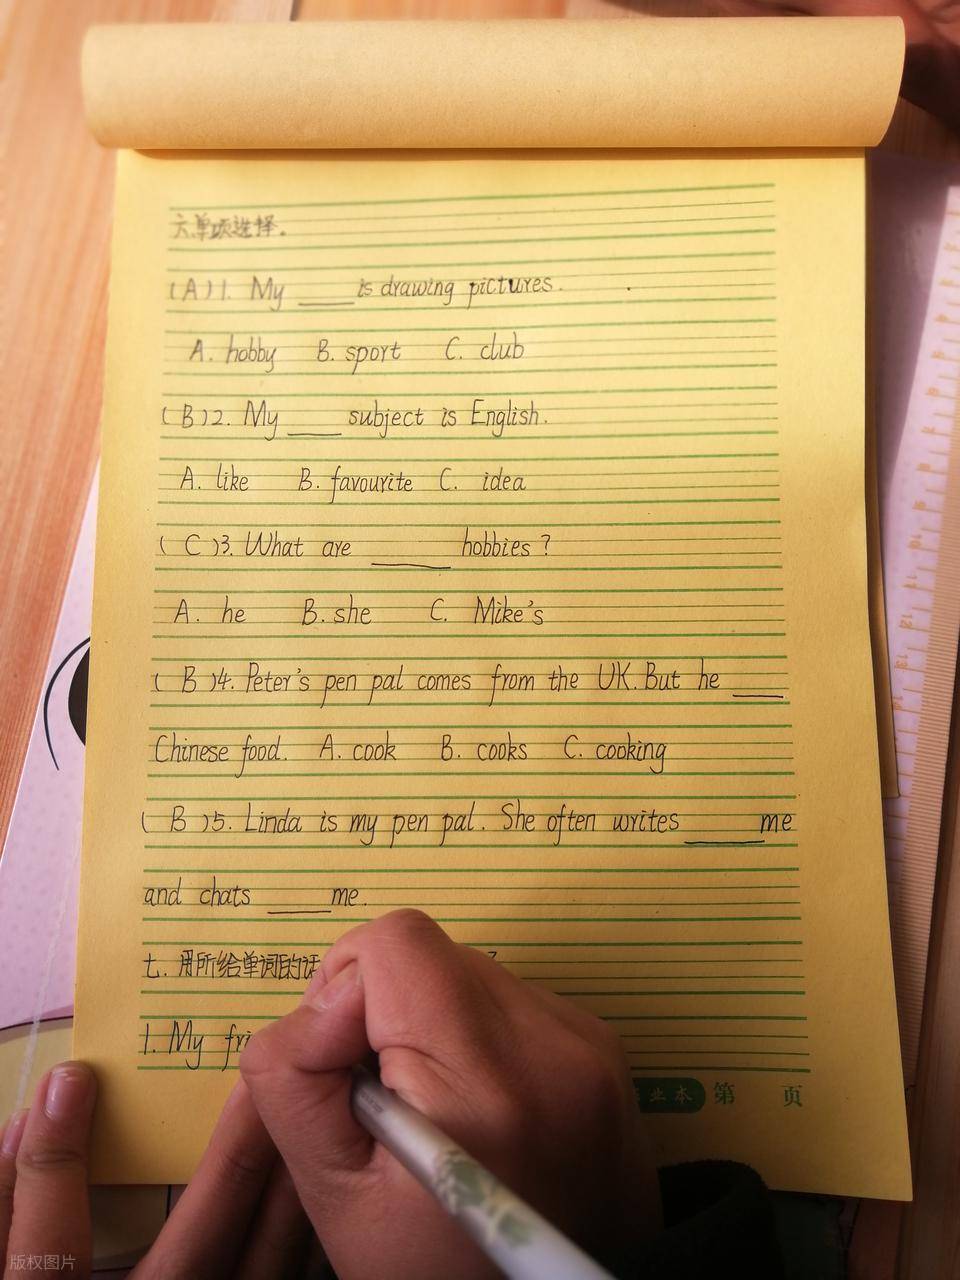 六.单项选择.
(A)1. My ____ is drawing pictures.
A. hobby B. sport C. club
(B)2. My ____ subject is English.
A. like B. favourite C. idea
(C)3. What are ____ hobbies?
A. he B. she C. Mike's
(B)4. Peter's pen pal comes from the UK. But he ____
Chinese food. A. cook B. cooks C. cooking
(B)5. Linda is my pen pal. She often writes ____ me
and chats ____ me.
七. 用所给单词的
1. My
业本 第 页
版权图片